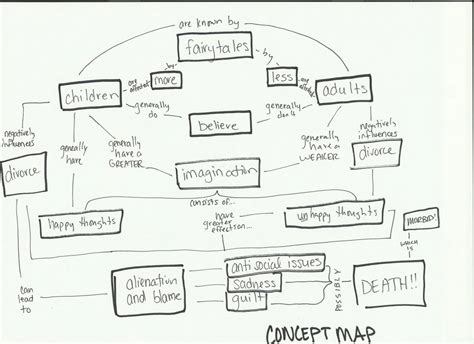 are known by
fairytales
by
by
are affected
more
less
are affected
children
adults
generally
do
believe
generally
don't
negatively
influences
generally
have
generally
have a
GREATER
imagination
generally
have a
WEAKER
negatively
influences
divorce
divorce
consists of...
happy thoughts
have
greater
effect on...
unhappy thoughts
MORBID!
which
is
can
lead
to
alienation
and blame
antisocial issues
sadness
guilt
POSSIBLY
DEATH!!
CONCEPT MAP